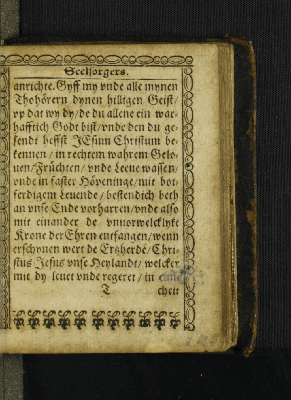 Seelsorgers.
anrichte. Gyff my vnde alle mynen
Thohörern dynen hilligen Geist/
vp dat wy dy/de du allene ein war-
hafftich Godt bist/vnde den du ge-
sendt heffst JEsum Christum be-
kennen/in rechtem wahrem Gelo-
uen/Früchten/vnde Leeue wassen/
vnde in faster Höpeninge/mit bot-
ferdigem Leuende/bestendich beth
an vnse Ende vorharren/vnde also
mit einander de vnuorwelcklyke
Krone der Ehren entfangen/wenn
erschynen wert de Ertzherde/Chri-
stus Jesus vnse Heylandt/welcker
mit dy leuet vnde regeret/in
T
cheit